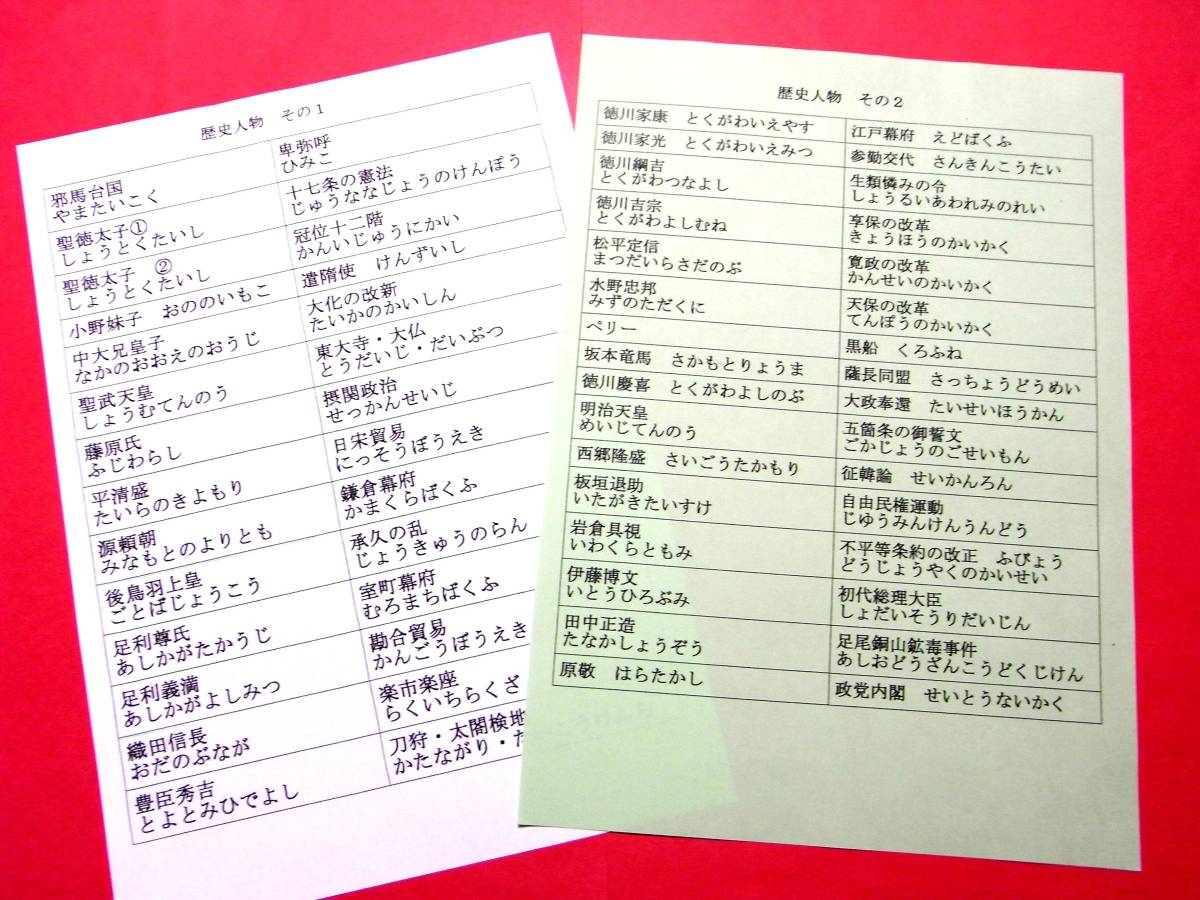 歴史人物　その１
邪馬台国
やまたいこく
卑弥呼
ひみこ
聖徳太子①
しょうとくたいし
十七条の憲法
じゅうななじょうのけんぽう
聖徳太子　②
しょうとくたいし
冠位十二階
かんいじゅうにかい
小野妹子　おののいもこ
遣隋使　けんずいし
中大兄皇子
なかのおおえのおうじ
大化の改新
たいかのかいしん
聖武天皇
しょうむてんのう
東大寺・大仏
とうだいじ・だいぶつ
藤原氏
ふじわらし
摂関政治
せっかんせいじ
平清盛
たいらのきよもり
日宋貿易
にっそうぼうえき
源頼朝
みなもとのよりとも
鎌倉幕府
かまくらばくふ
後鳥羽上皇
ごとばじょうこう
承久の乱
じょうきゅうのらん
足利尊氏
あしかがたかうじ
室町幕府
むろまちばくふ
足利義満
あしかがよしみつ
勘合貿易
かんごうぼうえき
織田信長
おだのぶなが
楽市楽座
らくいちらくざ
豊臣秀吉
とよとみひでよし
刀狩・太閤検地
かたながり・た
歴史人物　その２
徳川家康　とくがわいえやす
江戸幕府　えどばくふ
徳川家光　とくがわいえみつ
参勤交代　さんきんこうたい
徳川綱吉
とくがわつなよし
生類憐みの令
しょうるいあわれみのれい
徳川吉宗
とくがわよしむね
享保の改革
きょうほうのかいかく
松平定信
まつだいらさだのぶ
寛政の改革
かんせいのかいかく
水野忠邦
みずのただくに
天保の改革
てんぽうのかいかく
ペリー
黒船　くろふね
坂本竜馬　さかもとりょうま
薩長同盟　さっちょうどうめい
徳川慶喜　とくがわよしのぶ
大政奉還　たいせいほうかん
明治天皇
めいじてんのう
五箇条の御誓文
ごかじょうのごせいもん
西郷隆盛　さいごうたかもり
征韓論　せいかんろん
板垣退助
いたがきたいすけ
自由民権運動
じゆうみんけんうんどう
岩倉具視
いわくらともみ
不平等条約の改正　ふびょう
どうじょうやくのかいせい
伊藤博文
いとうひろぶみ
初代総理大臣
しょだいそうりだいじん
田中正造
たなかしょうぞう
足尾銅山鉱毒事件
あしおどうざんこうどくじけん
原敬　はらたかし
政党内閣　せいとうないかく